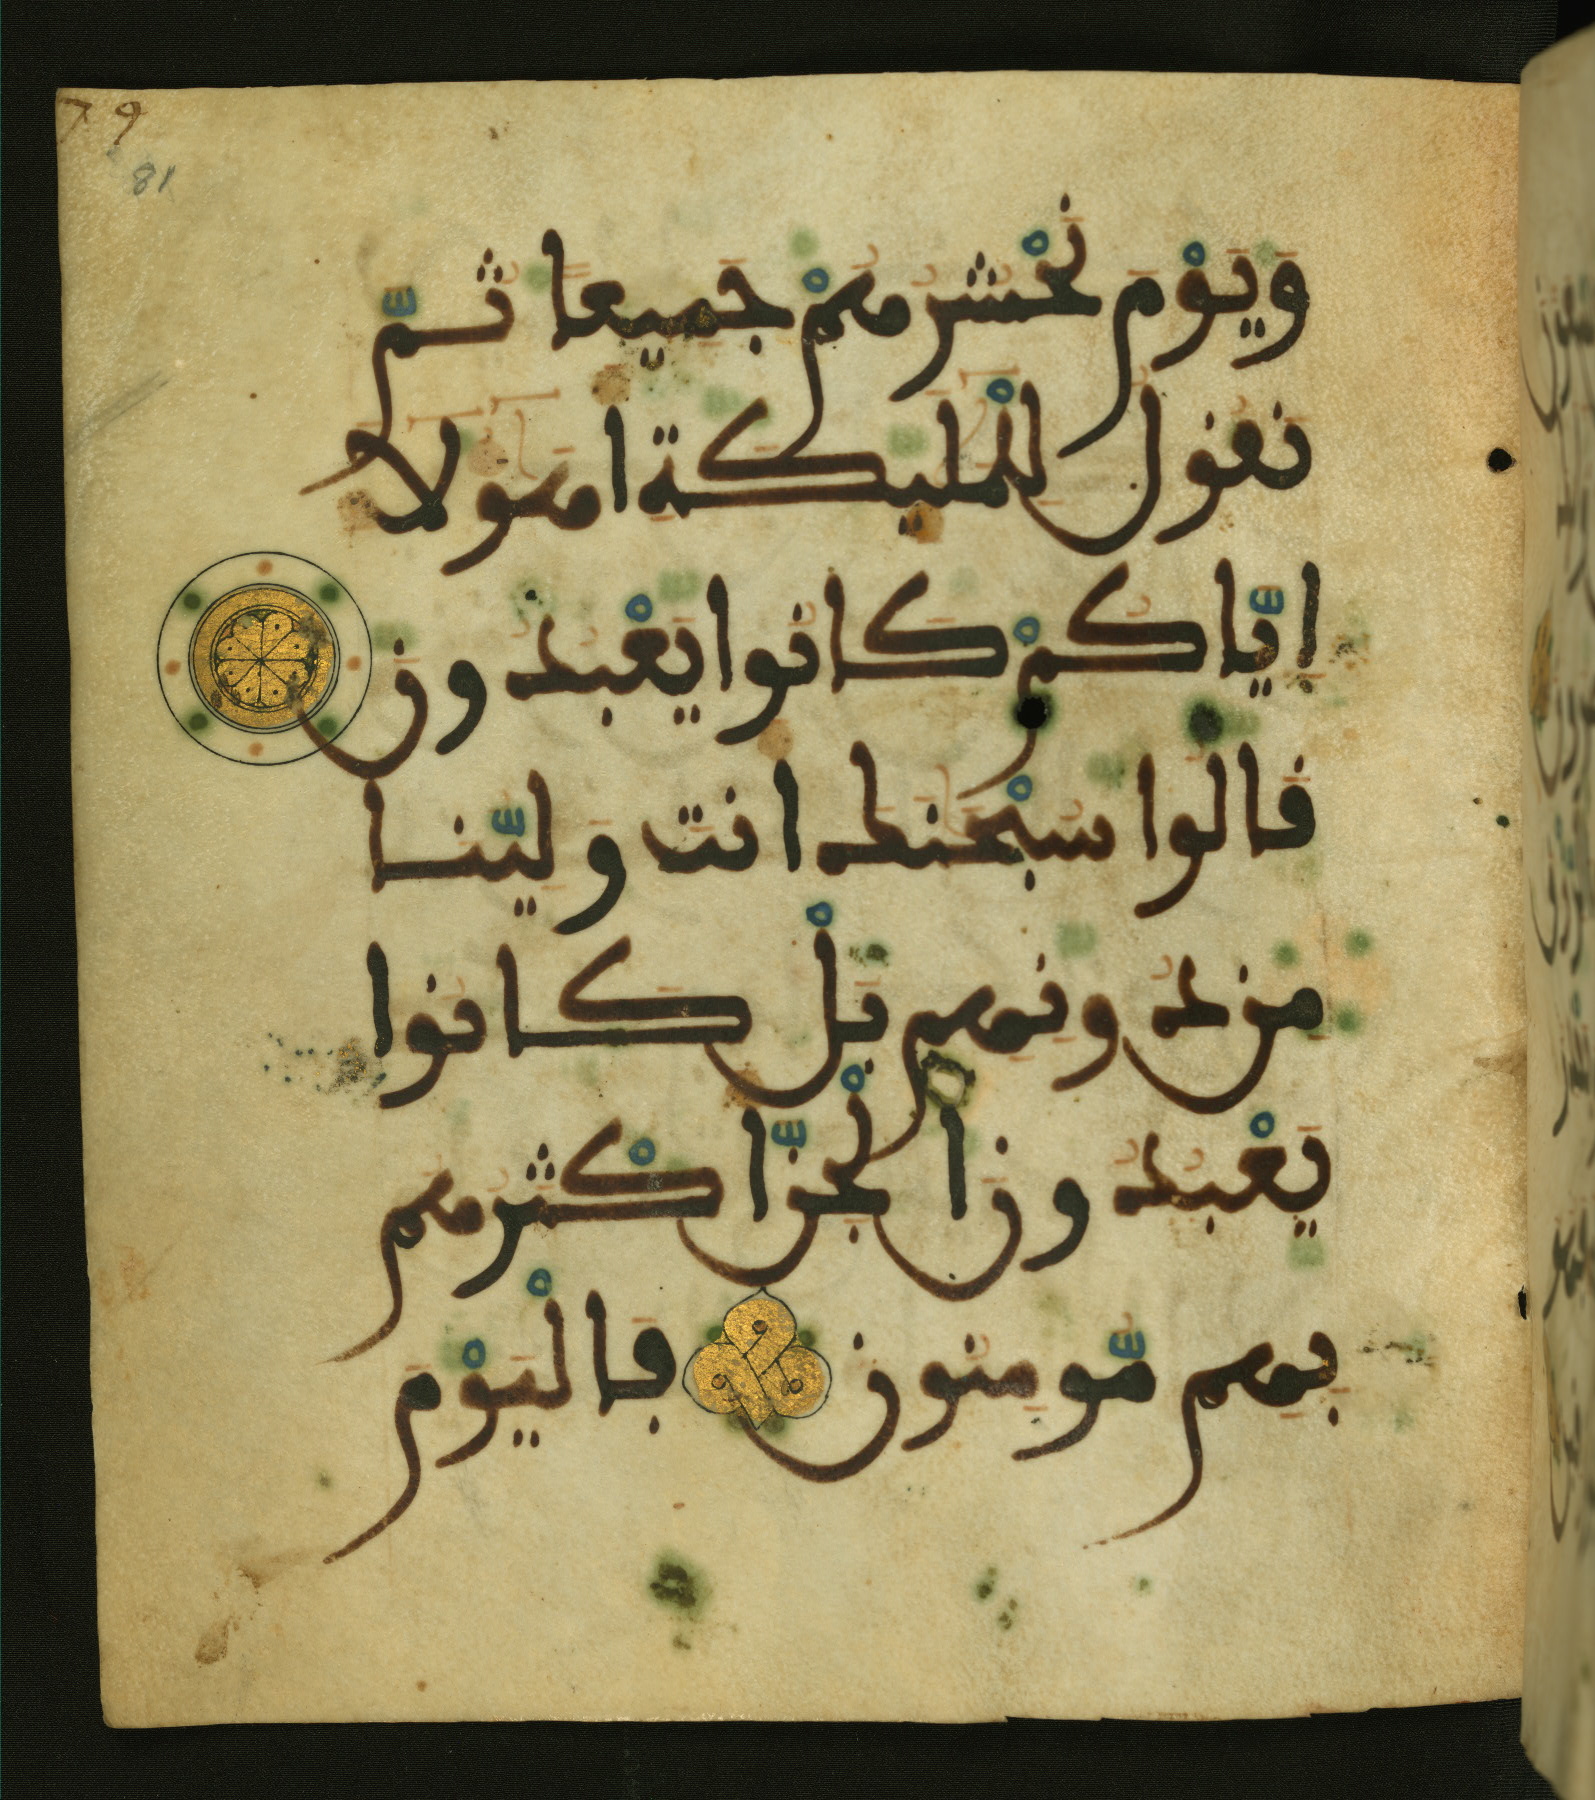 79
81
وَيَوْمَ نَحْشُرُهُمْ جَمِيعًا ثُمَّ
نَقُولُ لِلْمَلَٰٓئِكَةِ أَهَٰٓؤُلَآءِ
إِيَّاكُمْ كَانُوا يَعْبُدُونَ
قَالُوا سُبْحَٰنَكَ أَنتَ وَلِيُّنَا
مِن دُونِهِم بَلْ كَانُوا
يَعْبُدُونَ الْجِنَّ أَكْثَرُهُم
بِهِم مُّومِنُونَ فَالْيَوْمَ